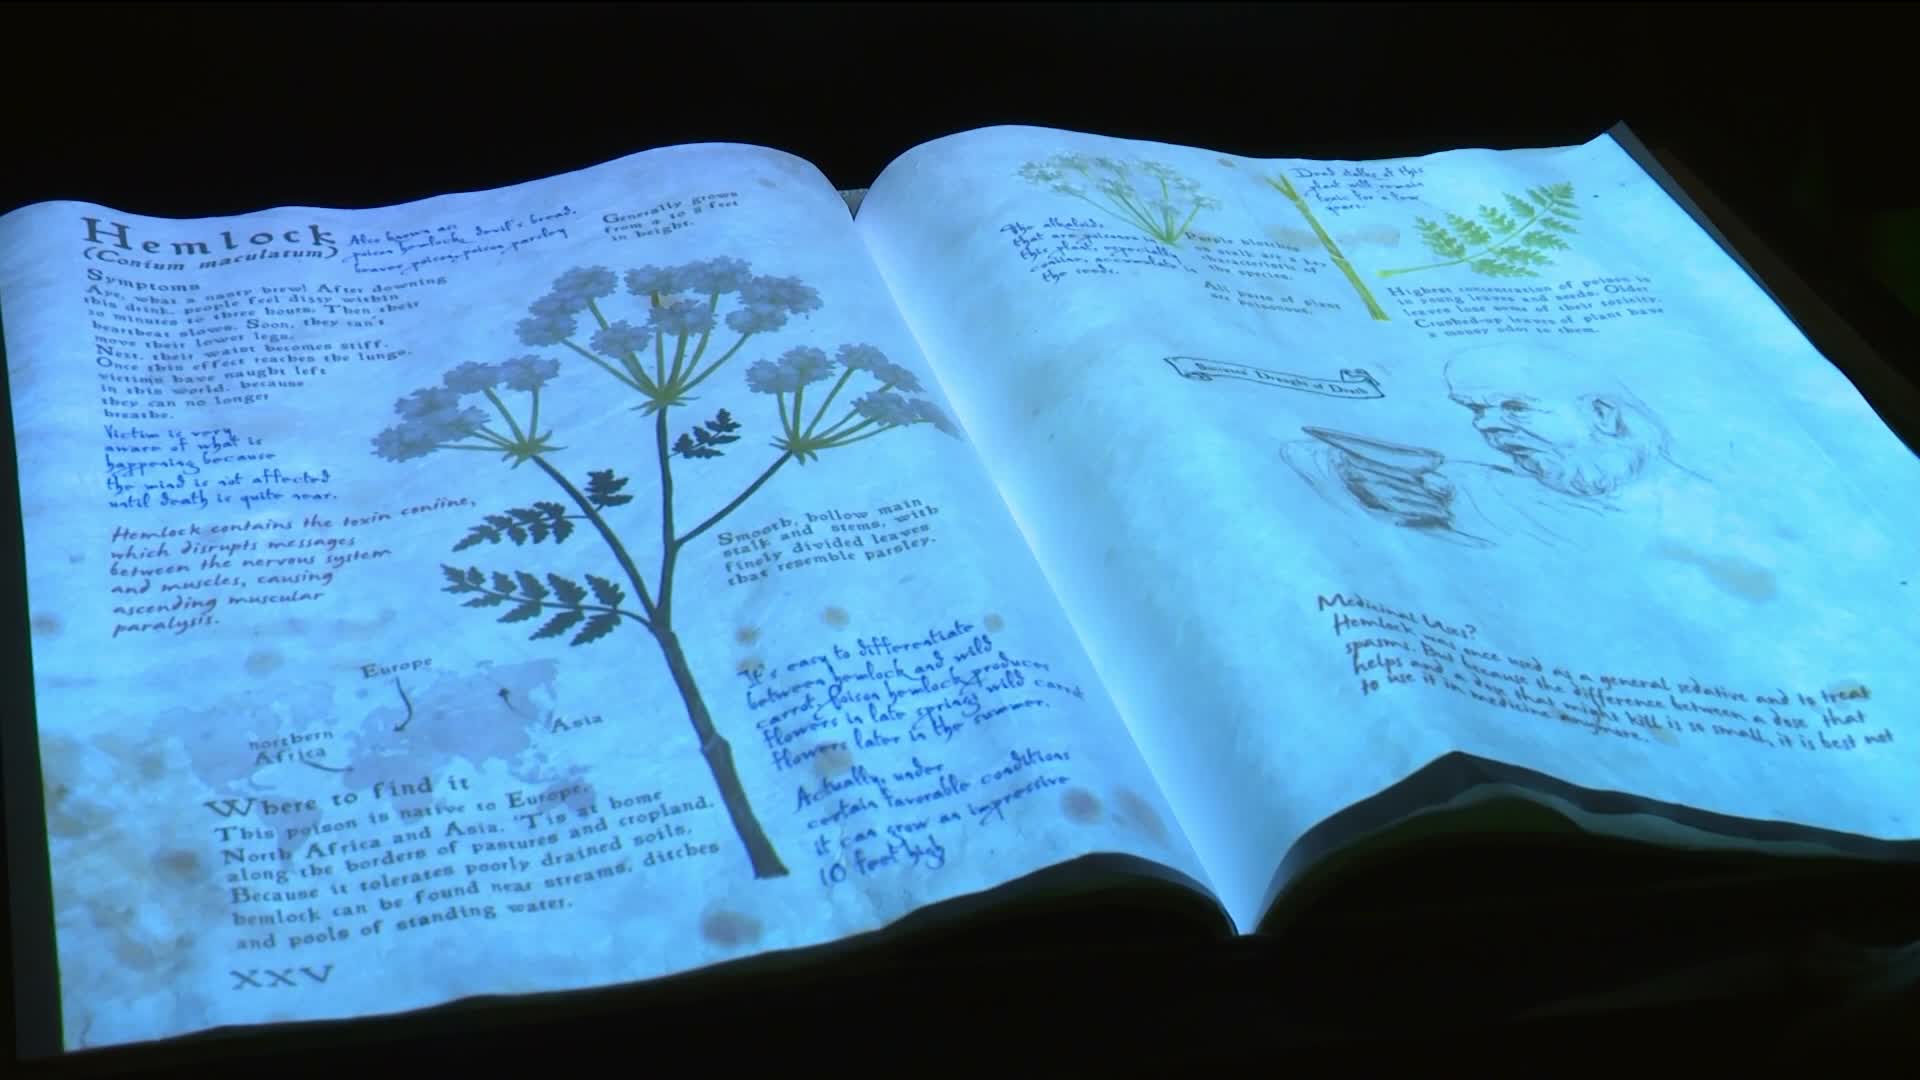 Hemlock
(Conium maculatum)
Also known as:
poison hemlock, devil's bread,
beaver poison, poison parsley
Generally grows
from 4 to 8 feet
in height.
Symptoms
Aye, what a nasty brew! After downing
this drink, people feel dizzy within
30 minutes to three hours. Then their
heartbeat slows. Soon, they can't
move their lower legs.
Next, their waist becomes stiff.
Once this effect reaches the lungs,
victims have naught left
in this world, because
they can no longer
breathe.
Victim is very
aware of what is
happening because
the mind is not affected
until death is quite near.
Hemlock contains the toxin coniine,
which disrupts messages
between the nervous system
and muscles, causing
ascending muscular
paralysis.
Smooth, hollow main
stalk and stems, with
finely divided leaves
that resemble parsley.
Europe
Asia
northern
Africa
Where to find it
This poison is native to Europe,
North Africa and Asia. 'Tis at home
along the borders of pastures and cropland.
Because it tolerates poorly drained soils,
hemlock can be found near streams, ditches
and pools of standing water.
It's easy to differentiate
between hemlock and wild
carrot. Poison hemlock produces
flowers in late spring; wild carrot
flowers later in the summer.
Actually, under
certain favorable conditions
it can grow an impressive
10 feet high
XXV
The alkaloids
that are poisonous in
this plant, especially
coniine, accumulate in
the seeds.
Purple blotches
on stalk are a key
characteristic of
the species.
All parts of plant
are poisonous.
Dead stalks of this
plant will remain
toxic for a few
years.
Highest concentration of poison is
in young leaves and seeds. Older
leaves lose some of their toxicity.
Crushed-up leaves of plant have
a mousy odor to them.
Draught of Death
Medicinal Uses?
Hemlock was once used as a general sedative and to treat
spasms. But because the difference between a dose that
helps and a dose that might kill is so small, it is best not
to use it in medicine anymore.